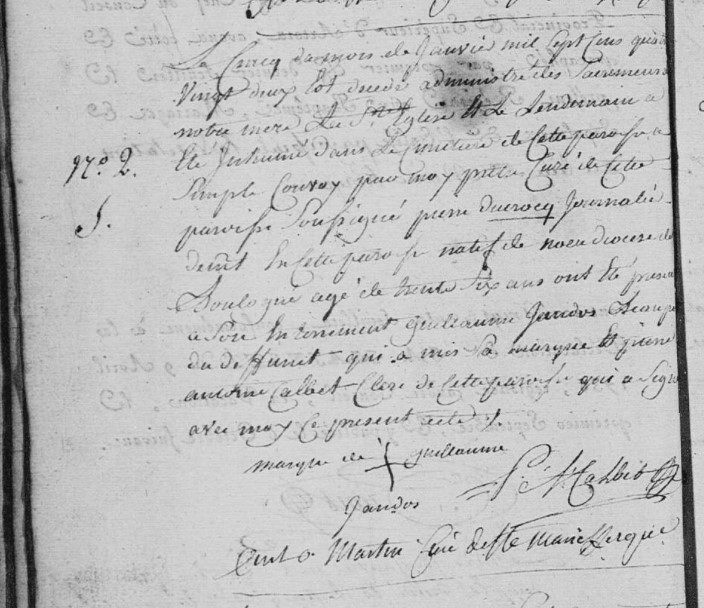 Le Cincq du mois de Janvié mil Sept Cens quatre
vingt deux Est decedé administré des Sacremens de
notre mere Le Ste Eglise Et Le Lendemain a
N.o 2. Eté Inhumé dans Le Cimetière de Cette paroisse a
Simple Convoy par moy prêtre Curé de Cette
S. paroisse Soussigné pierre ducrocq Journalié
demt En Cette paroisse natif de noeu diocese de
Boulogne agé de trente Six ans ont Eté presens
a Son Enterrement guillaume Jandos
du deffunt qui a mis Sa marque Et pierre
antoine Calbet Clerc de Cette paroisse qui a Signé
avec moy Ce present acte ./.
marque de guillaume
Jandos
P. A. Calbet
Martin Curé de Ste Marie Kerque